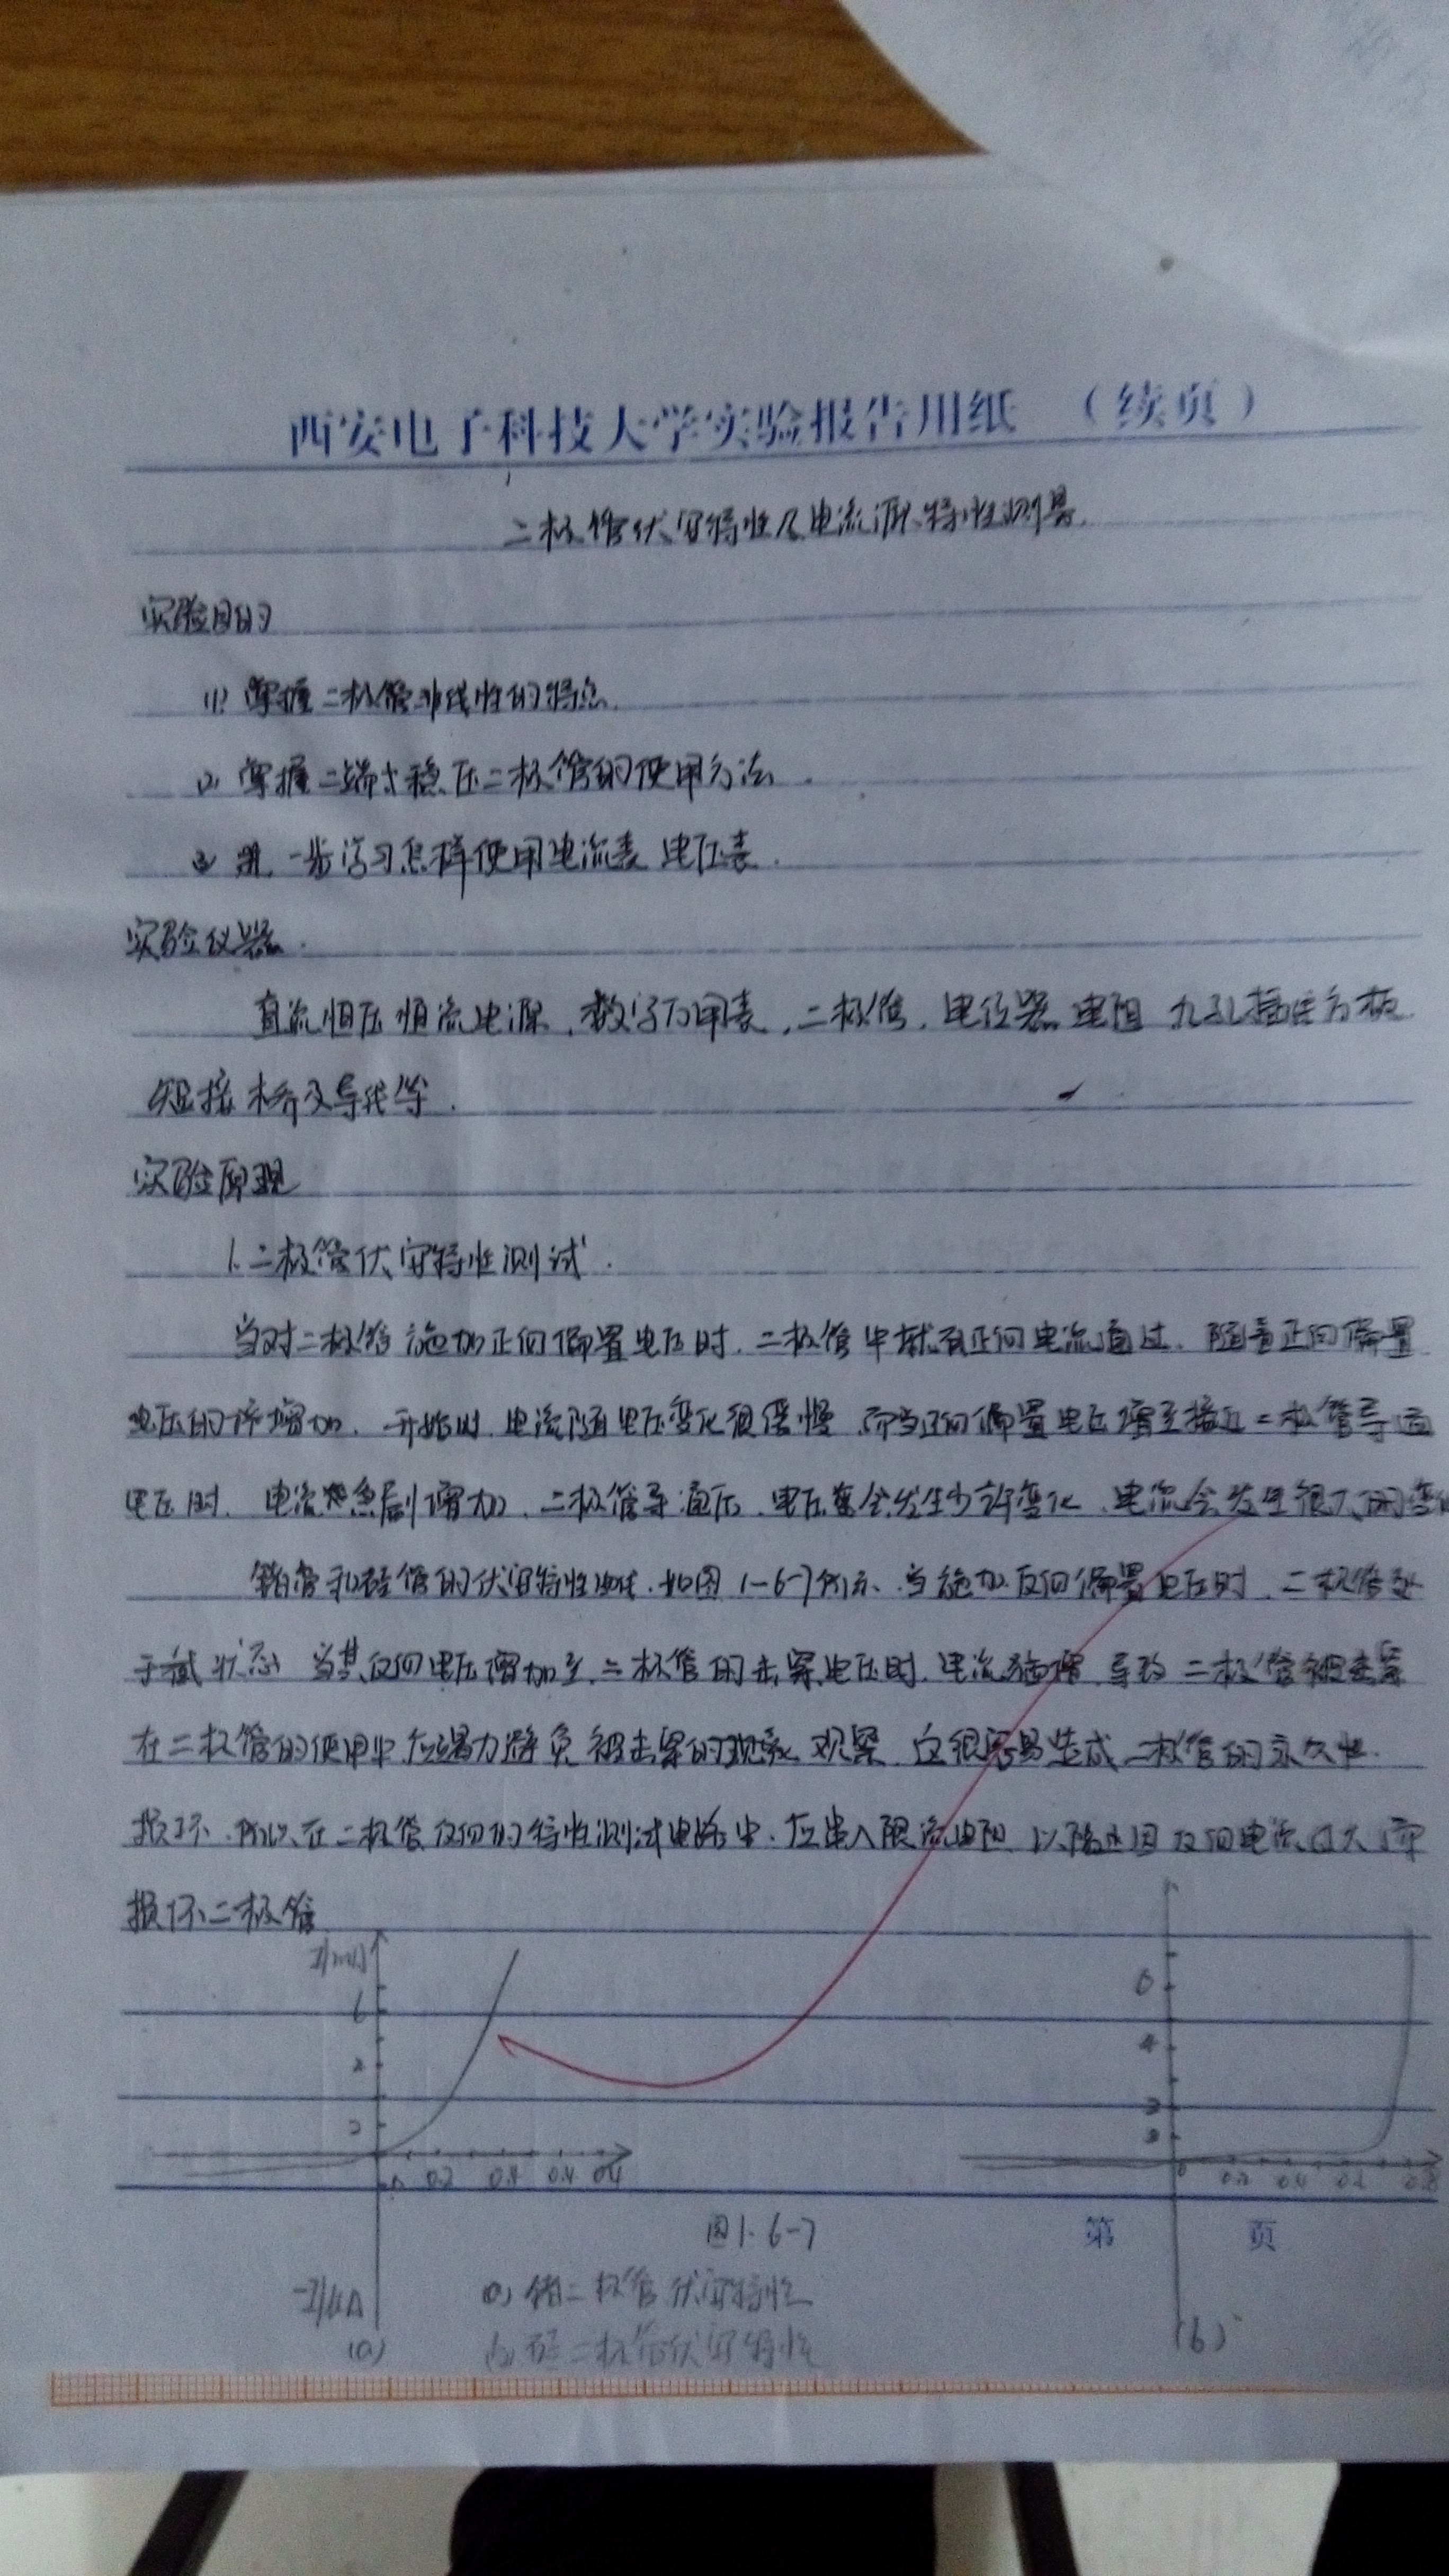 西安电子科技大学实验报告用纸 （续页）
二极管伏安特性及电流源特性测量.
实验目的
(1) 掌握二极管非线性的特点.
(2) 掌握二端式稳压二极管的使用方法.
(3) 进一步学习怎样使用电流表 电压表.
实验仪器.
直流恒压恒流电源, 数字万用表, 二极管, 电位器 电阻 九孔插件方板
短接桥及导线等.
实验原理
1. 二极管伏安特性测试.
当对二极管施加正向偏置电压时, 二极管中就有正向电流通过, 随着正向偏置
电压的增加, 开始时, 电流随电压变化很缓慢, 而当正向偏置电压增至接近二极管导通
电压时, 电流急剧增加, 二极管导通后, 电压会发生少许变化, 电流会发生很大的变化
锗管和硅管的伏安特性曲线, 如图 1-6-7 所示. 当施加反向偏置电压时, 二极管处
于截止状态 当其反向电压增加至二极管的击穿电压时, 电流猛增, 导致二极管被击穿
在二极管的使用中应竭力避免被击穿的现象 观察 这很容易造成二极管的永久性
损坏. 所以在二极管反向的特性测试电路中, 应串入限流电阻, 以防止因反向电流过大而
损坏二极管
I/mA
6
2
2
0.2 0.4 0.4
6
4
2
0 0.2 0.4
图1-6-7
第 页
-I/μA
(a) 锗二极管伏安特性
(a)
(b) 硅二极管伏安特性
(b)